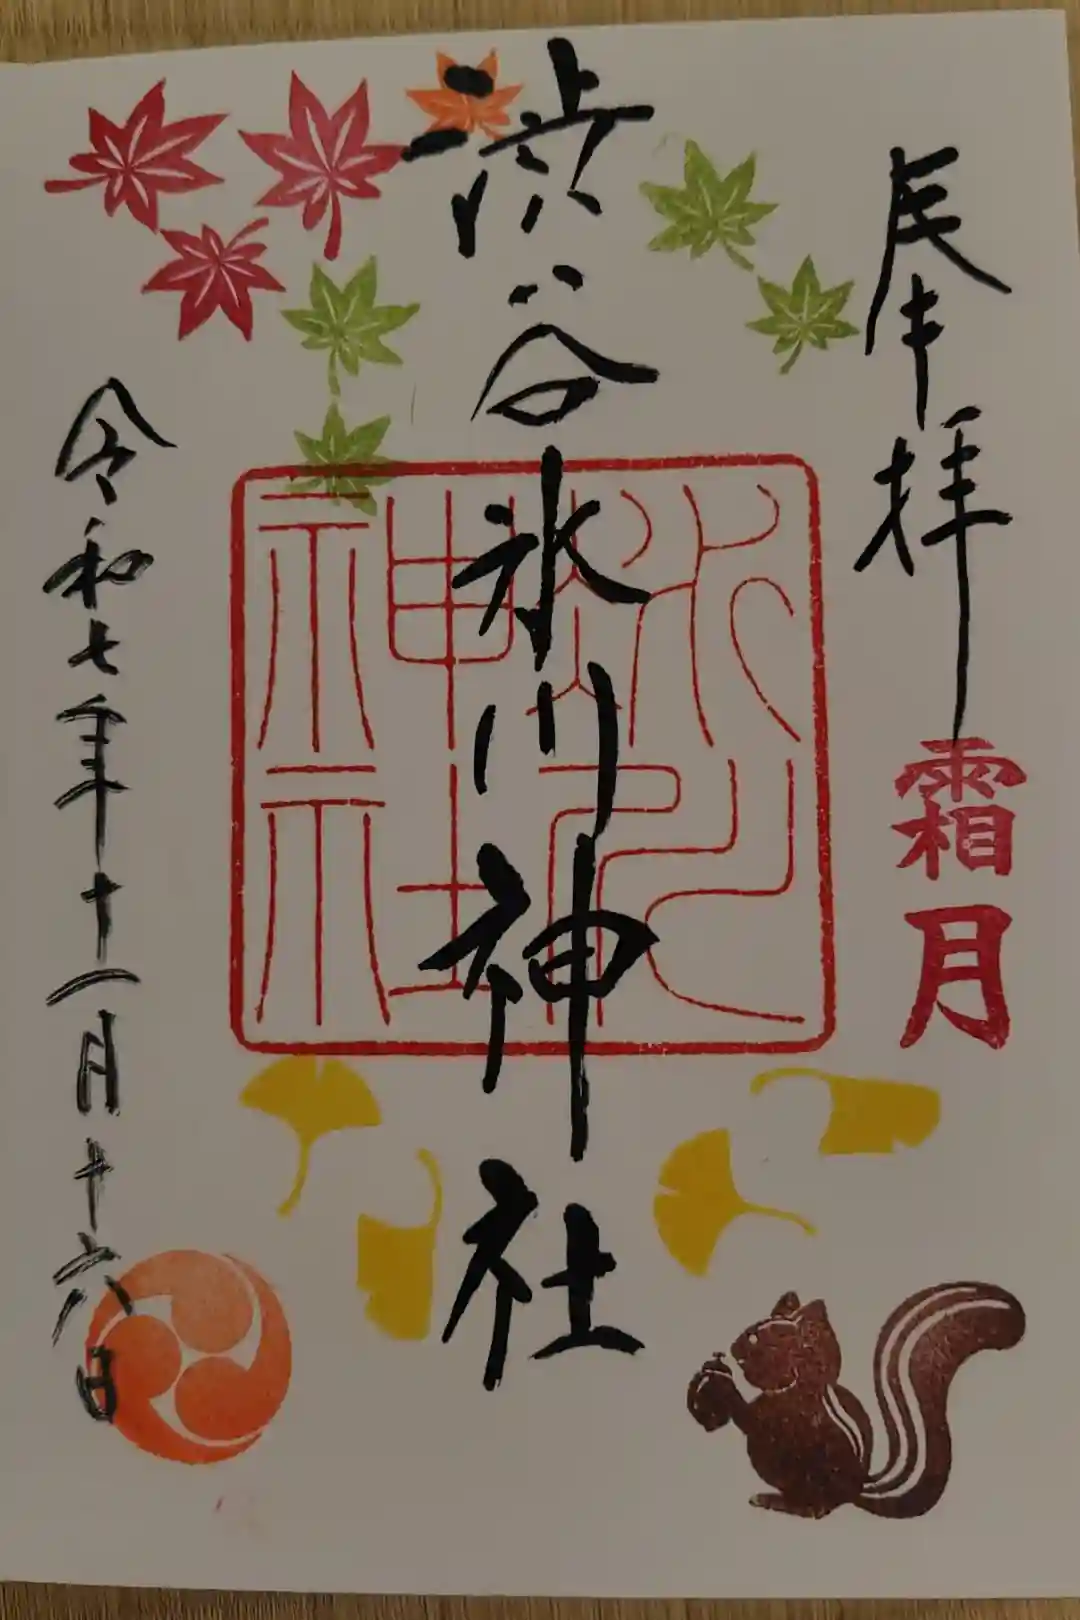 奉拝
霜月
渋谷氷川神社
氷川
神社
令和七年十一月十六日